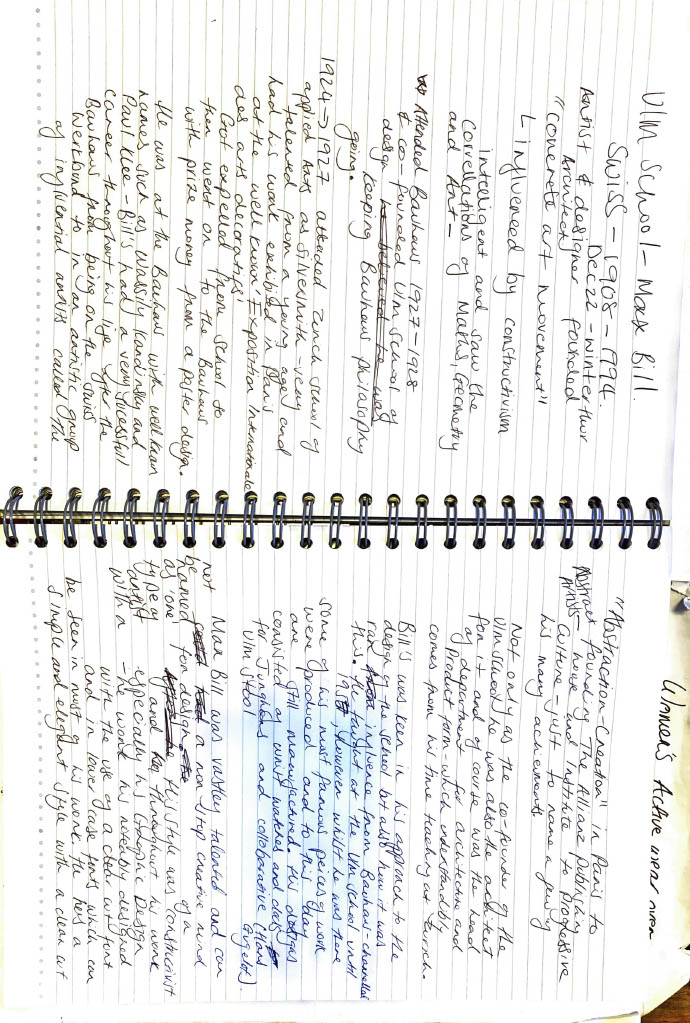 Ulm School - Max Bill.
Swiss - 1908 - 1994.
Dec 22 - Winterthur
Artist & designer founded
Architect
"concrete art movement"
L influenced by constructivism
intelligent and saw the
correllations of Maths, Geometry
and Art -
Attended Bauhaus 1927 - 1928
& co-founded Ulm School of
design he believed he was
keeping Bauhaus philosophy
going.
1924 -> 1927 attended Zurich School of
applied Arts as Silversmith - very
talented from a young age, and
had his work exhibited in Paris
at the well known 'Exposition Internationale
des arts decoratifs'
Got expelled from school to
then went on to the Bauhaus
with prize money from a poster design.
He was at the Bauhaus with well known
names such as Wassily Kandinsky and
Paul Klee - Bill's had a very successfull
career throughout his life after the
Bauhaus from being on the Swiss
Werkbund to in an artistic group
of influential artists called the
Women's Active wear
"Abstraction-Creation" in Paris to
Abstract founding The Allianz publishing
Artists - house and institute to Progressive
Culture - just to name a few of
his many achievments
Not only as the co-founder of the
Ulm School he was also the architect
for it and of course was the head
of department for architecture and
product form - which understandably
comes from his time teaching at Zurich.
Bill's was keen in his approach to the
design of the school but also how it was
ran influence from Bauhaus - channelled
this. He taught at the Ulm School until
However whilst he was there
some of his most famous peices of work
were produced and to this day
are still manufactured. His designs
consisted of wrist watches and clocks
for Junghans and collaborative (Hans
Ulm Stool Gugelot).
Max Bill was vastley talented and can
not
be named for design a non stop creative mind
as 'one' of a
type of and His style was constructivist
artist throughout his work
especially his Graphic Design
with a - he would his newley designed
with the use of a clear cut font
and in lower case fonts which can
be seen in most of his work. He has a
simple and elegant style with a clean cut